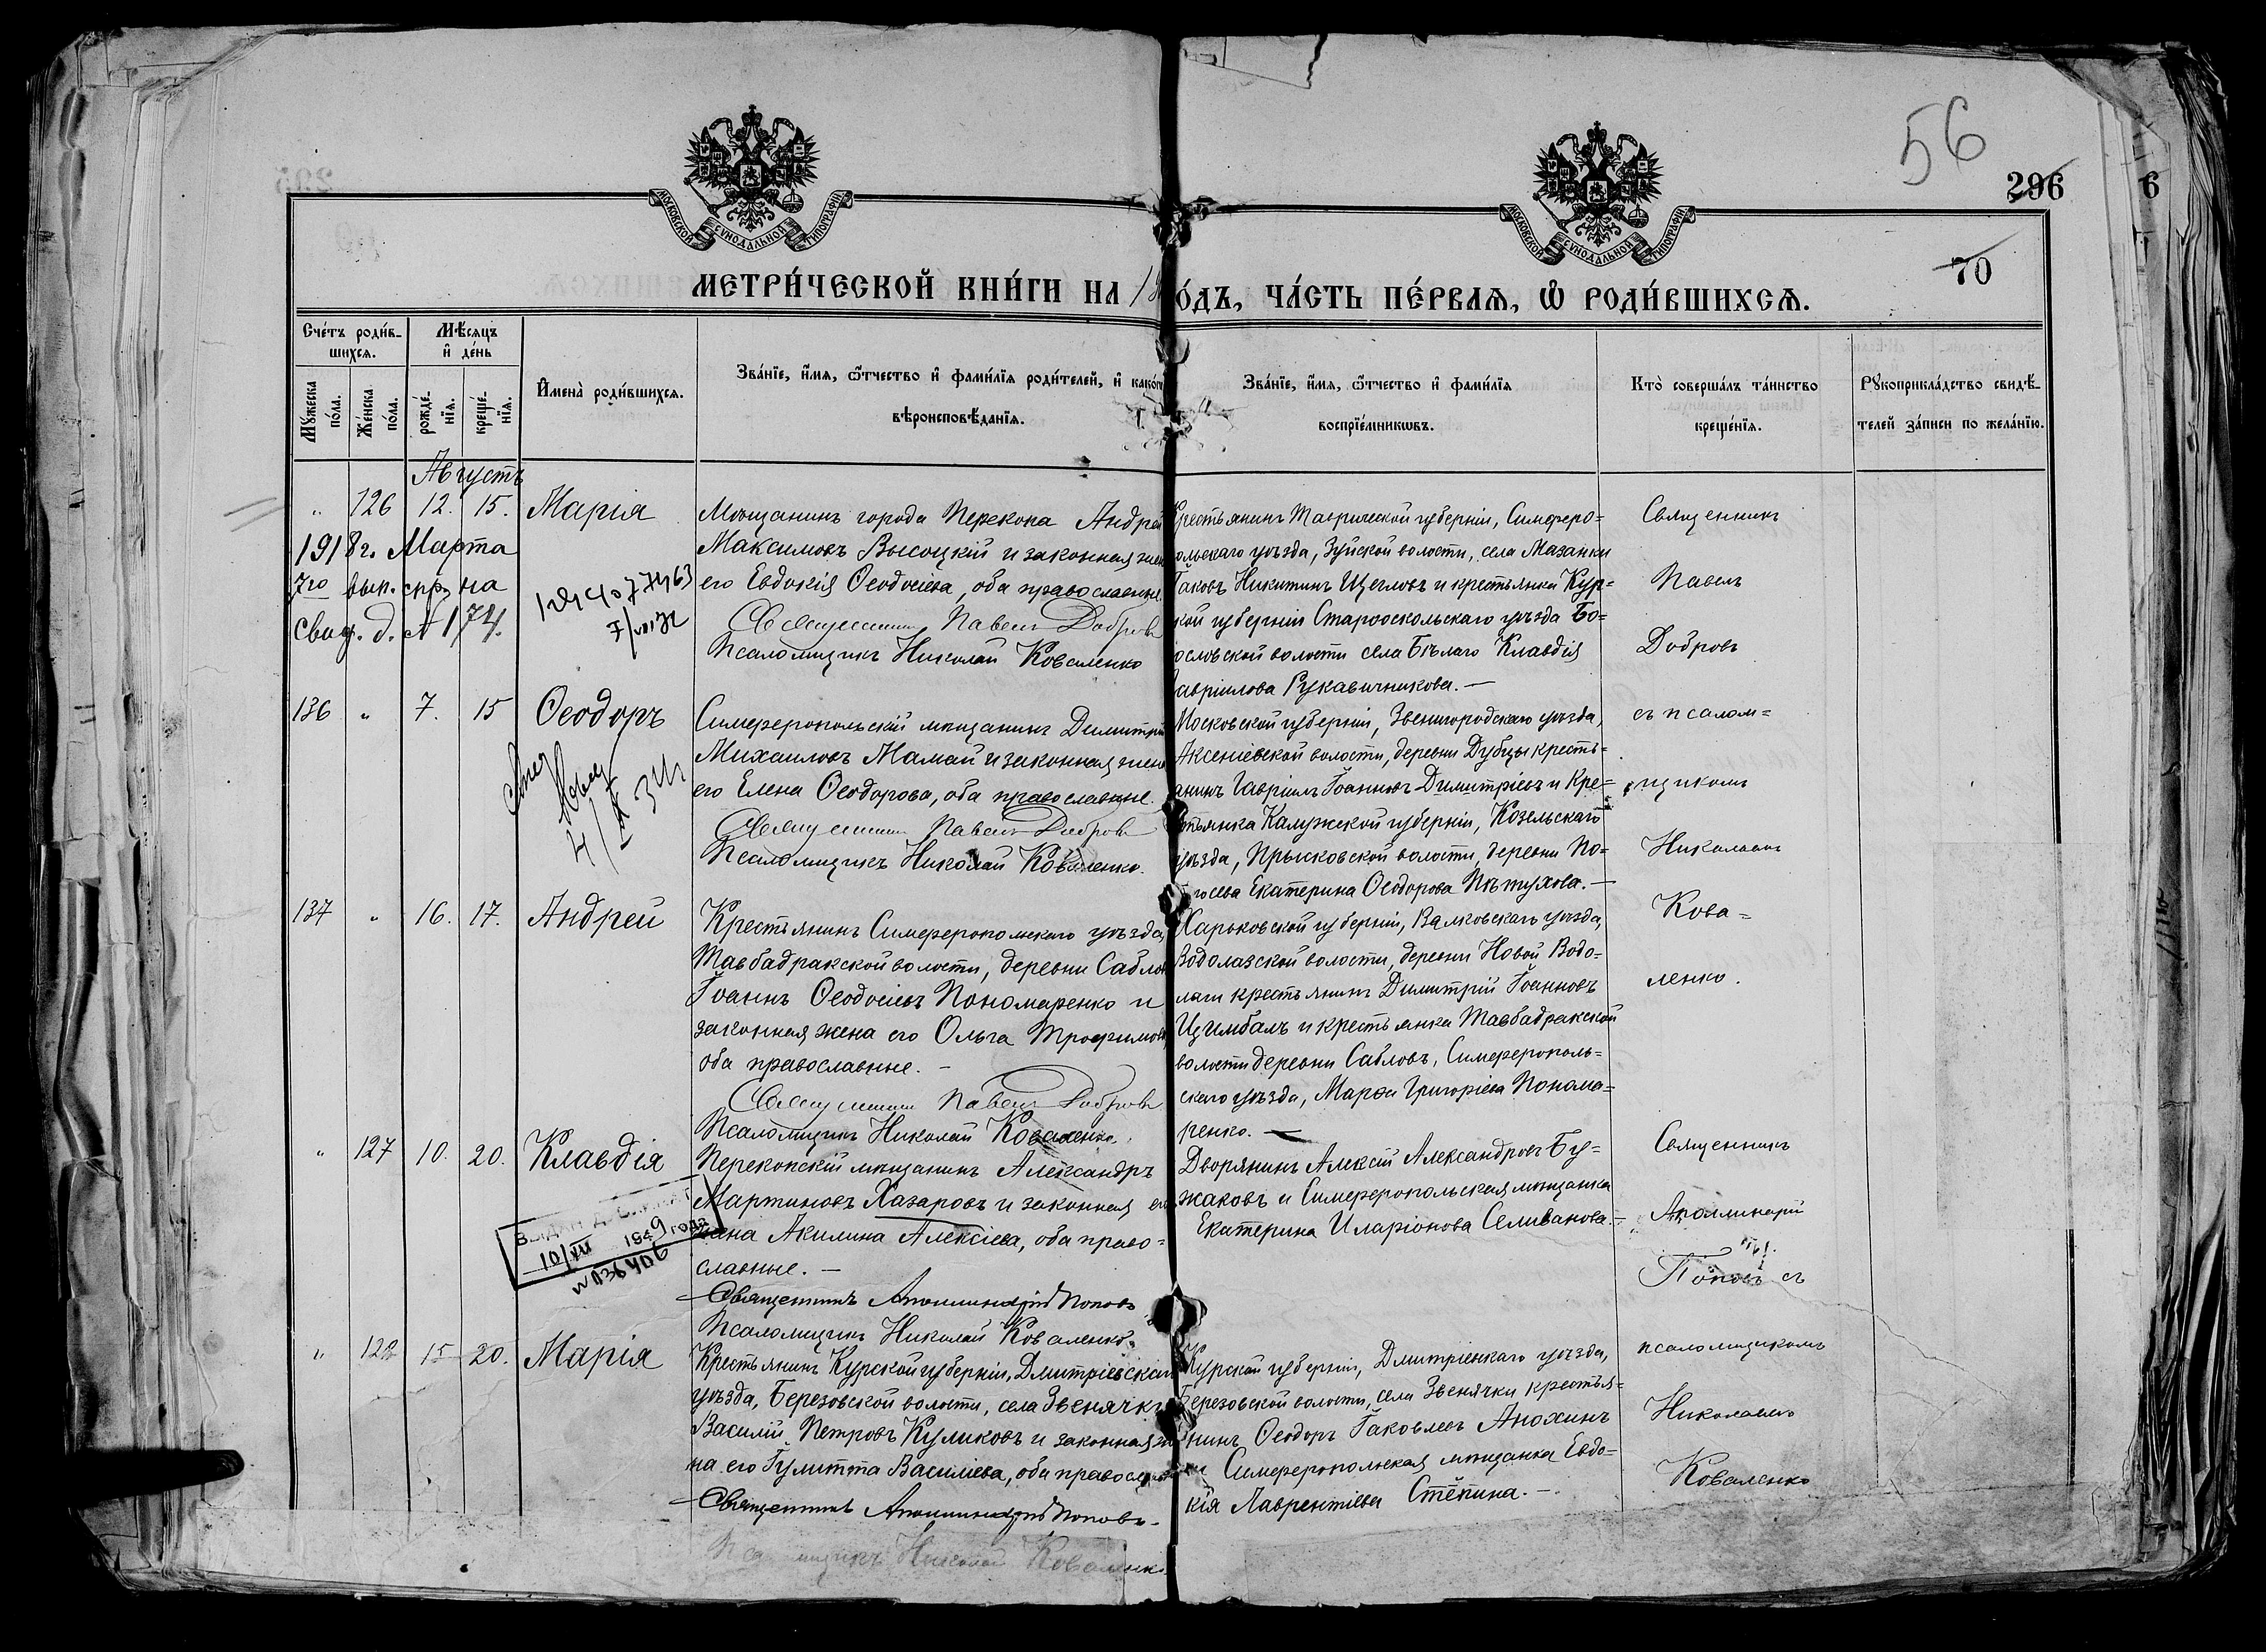 56
296
6
70
МОСКОВСКОЙ СУНОДАЛЬНОЙ ТИПОГРАФІИ
МОСКОВСКОЙ СУНОДАЛЬНОЙ ТИПОГРАФІИ
МЕТРИ́ЧЕСКОЙ КНИ́ГИ НА 1
О́ДЪ, ЧА́СТЬ ПЕ́РВАѦ, Ѿ РОДИ́ВШИХСѦ.
Сче́тъ роди́в-
шихсѧ.
Мꙋжеска по́ла.
Же́нска по́ла.
Мѣ́сѧцъ
и҆ де́нь
рожде́-
нїѧ.
креще́-
нїѧ.
И҆мена̀ роди́вшихсѧ.
Зва́нїе, и҆́мѧ, ѻ҆́тчество и҆ фами́лїѧ роди́телей, и҆ како́гѡ
вѣроисповѣ́данїѧ.
Зва́нїе, и҆́мѧ, ѻ҆́тчество и҆ фами́лїѧ
воспрїе́мникѡвъ.
Кто̀ соверша́лъ та́инство
креще́нїѧ.
Рꙋкоприкла́дство свидѣ́-
телей за́писи по жела́нїю.
Августъ
" 126 12. 15. Марія
1918 г. Марта
7го вып. спр. на
свид. д. № 174.
Мѣщанинъ города Перекопа Андрей
Максимовъ Высоцкій и законная жена
его Евдокія Ѳеодосіева, оба православные.
Священникъ Павелъ Добровъ
Псаломщикъ Николай Коваленко
Крестьянинъ Таврической губерніи, Симферо=
польскаго уѣзда, Зуйской волости, села Мазанки
Іаковъ Никитинъ Щегловъ и крестьянка Кур=
ской губерніи Старооскольскаго уѣзда Бо=
ословской волости села Бѣлаго Клавдія
Гавріилова Рукавичникова. —
Священникъ
Павелъ
Добровъ
съ псалом=
щикомъ
Николаемъ
Кова=
ленко.
136 " 7. 15 Ѳеодоръ
Симферопольскій мѣщанинъ Димитрій
Михаиловъ Мамай и законная жена
его Елена Ѳеодорова, оба православные.
Священникъ Павелъ Добровъ
Псаломщикъ Николай Коваленко.
Московской губерніи, Звенигородскаго уѣзда,
Аксеніевской волости, деревни Дубцы кресть=
янинъ Гавріилъ Іоанновъ Димитріевъ и Кре=
стьянка Калужской губерніи, Козельскаго
уѣзда, Прысковской волости, деревни По=
госева Екатерина Ѳеодорова Пѣтухова. —
137 " 16. 17. Андрей
Крестьянинъ Симферопольскаго уѣзда,
Тавбадракской волости, деревни Саблов
Іоаннъ Ѳеодосіевъ Пономаренко и
законная жена его Ольга Трофимова,
оба православные. —
Священникъ Павелъ Добровъ
Псаломщикъ Николай Коваленко.
Харьковской губерніи, Валковскаго уѣзда,
Водолазской волости, деревни Новой Водо=
лаги крестьянинъ Димитрій Іоанновъ
Цымбалъ и крестьянка Тавбадракской
волости деревни Сабловъ, Симферополь=
скаго уѣзда, Марфа Григоріева Понома=
ренко. —
" 127 10. 20. Клавдія
10/VII 1949 года
Перекопскій мѣщанинъ Александръ
Мартиновъ Хазаровъ и законная его
жена Акилина Алексіева, оба право=
славные. —
Священникъ Аполлинарій Поповъ
Псаломщикъ Николай Коваленко.
Дворянинъ Алексій Александровъ Бу=
жаковъ и Симферопольская мѣщанка
Екатерина Иларіонова Селиванова. —
Священникъ
Аполлинарій
Поповъ съ
псаломщикомъ
Николаемъ
Коваленко
" 128 15 20. Марія
Крестьянинъ Курской губерніи, Дмитріевскаго
уѣзда, Березовской волости, села Звенячки
Василій Петровъ Куликовъ и законная же
на его Іулитта Василіева, оба православные
Священникъ Аполлинарій Поповъ.
Псаломщикъ Николай Коваленко
Курской губерніи, Дмитріевскаго уѣзда,
Березовской волости, села Звенячки крестья=
нинъ Ѳеодоръ Іаковлевъ Анохинъ
и Симферопольская мѣщанка Евдо=
кія Лаврентіева Стёпина. —